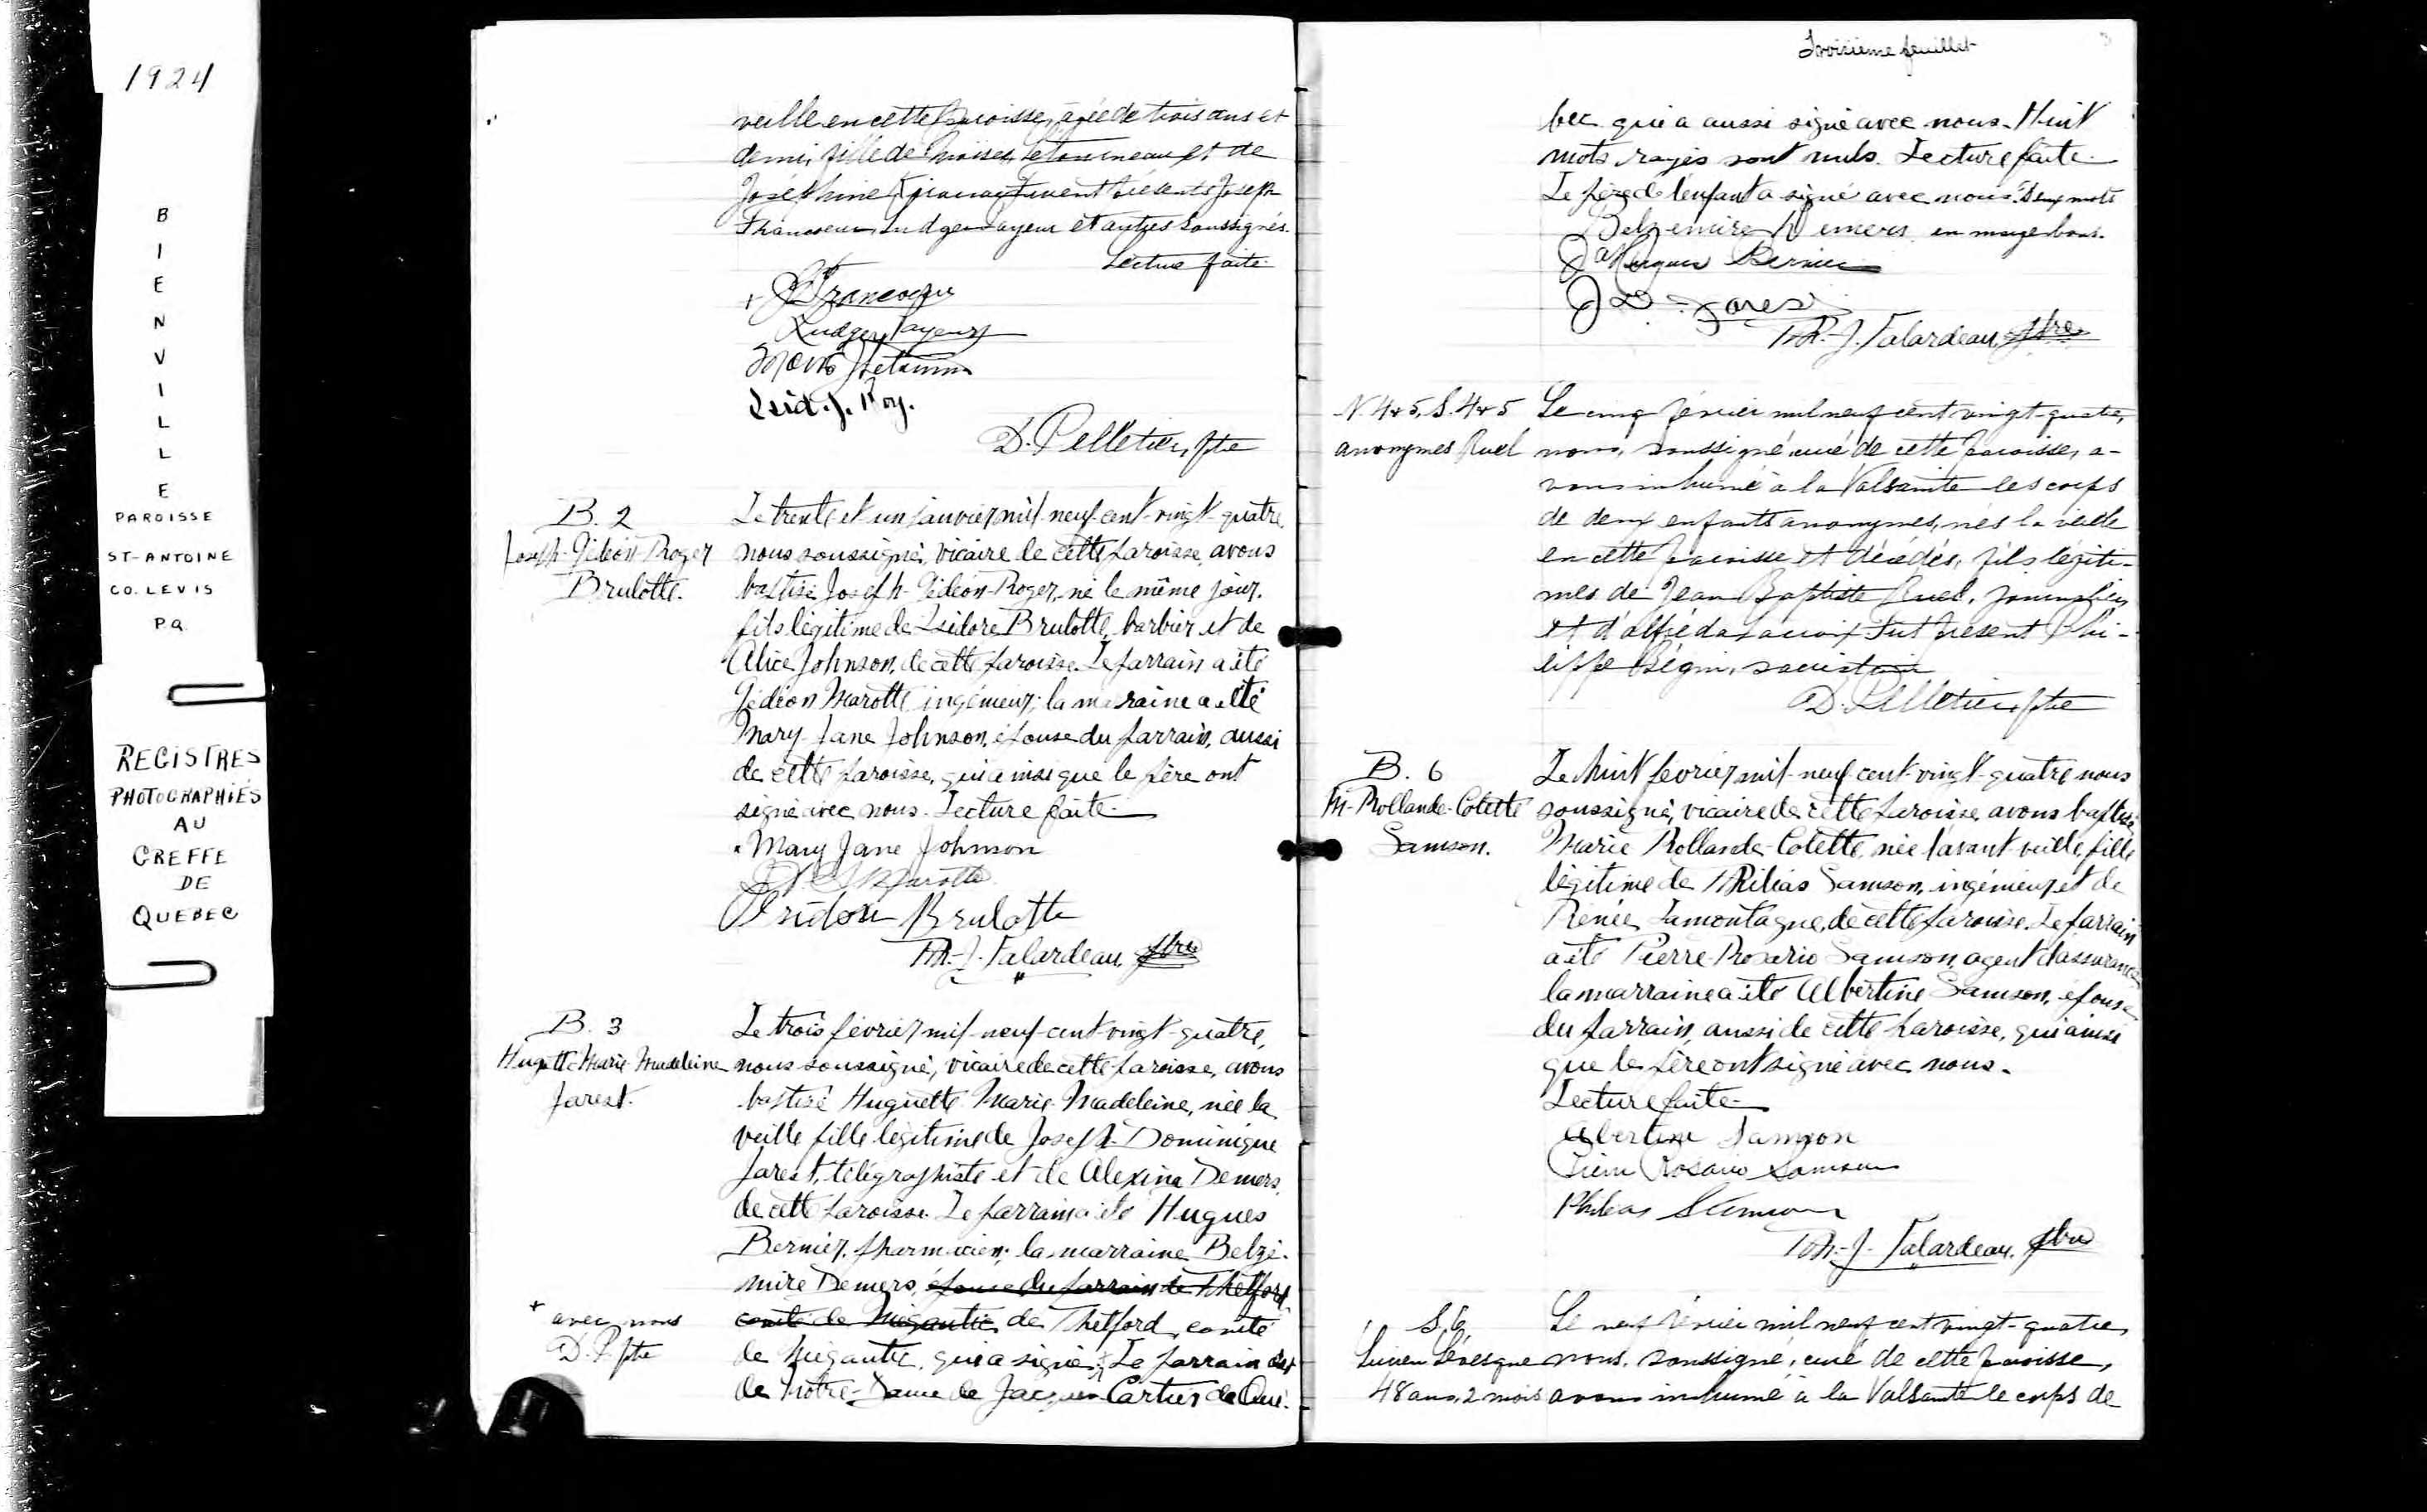 1924
BIENVILLE
PAROISSE
ST-ANTOINE
CO. LEVIS
P.Q.
REGISTRES
PHOTOGRAPHIÉS
AU
GREFFE
DE
QUEBEC
veille en cette paroisse, âgée de trois ans et
demi, fille de Moïse Letourneau et de
Joséphine furent présents Joseph
Francoeur, Ludger Payeur et autres soussignés.
Lecture faite.
+ J. Francoeur
Ludger Payeur
J. Roy.
D. Pelletier, ptre
B. 2
Joseph-Gédéon-Roger
Brulotte.
Le trente et un janvier mil-neuf-cent-vingt-quatre,
nous soussigné, vicaire de cette paroisse, avons
baptisé Joseph-Gédéon-Roger, né le même jour,
fils légitime de Isidore Brulotte, barbier et de
Alice Johnson, de cette paroisse. Le parrain a été
Gédéon Marotte, ingénieur; la marraine a été
Mary-Jane Johnson, épouse du parrain, aussi
de cette paroisse, qui ainsi que le père ont
signé avec nous. Lecture faite.
Mary Jane Johnson
Marotte
Isidore Brulotte
Th.-J. Falardeau, ptre
B. 3
Hugette Marie Madeleine
Jarest.
Le trois février mil-neuf-cent-vingt-quatre,
nous soussigné, vicaire de cette paroisse, avons
baptisé Huguette Marie-Madeleine, née la
veille fille légitime de Joseph-Dominique
Jarest, télégraphiste et de Alexina Demers,
de cette paroisse. Le parrain a été Hugues
Bernier, pharmacien; la marraine Belzé-
mire Demers, épouse du parrain de Thetford
comté de Mégantic de Thetford, comté
de Mégantic, qui a signé + Le parrain est
de Notre-Dame de Jacques-Cartier de Qué-
+ avec nous
D. P. ptre
Troisième feuillet
3
bec qui a aussi signé avec nous. Huit
mots rayés sont nuls. Lecture faite.
Le père de l'enfant a signé avec nous. Deux mots
Belzemire Demers en marge bons.
Hugues Bernier
J D Jarest
Th.-J. Falardeau, ptre
N. 4 & 5. S. 4 & 5
anonymes Ruel
Le cinq février mil neuf cent vingt-quatre,
nous, soussigné, curé de cette paroisse, a-
vons inhumé à la Valsainte les corps
de deux enfants anonymes, nés la veille
en cette paroisse et décédés, fils légiti-
mes de Jean Baptiste Ruel, journalier,
et d'Alfréda Lacroix. Fut présent Phi-
lippe Bégin, sacristain
D. Pelletier, ptre
B. 6
M-Rollande-Colette
Samson.
Le huit fevrier mil-neuf-cent-vingt-quatre nous
soussigné, vicaire de cette paroisse avons baptisé
Marie Rollande-Colette, née l'avant-veille, fille
légitime de Philias Samson, ingénieur et de
Renée Lamontagne, de cette paroisse. Le parrain
a été Pierre-Rosario Samson, agent d'assurance
la marraine a été Albertine Samson, épouse
du parrain, aussi de cette paroisse, qui ainsi
que le père ont signé avec nous.
Lecture faite.
Albertine Samson
Pierre Rosario Samson
Phileas Samson
Th.-J. Falardeau, ptre
S. 6
Lucien Lévesque
48 ans, 2 mois
Le neuf février mil neuf cent vingt-quatre,
nous, soussigné, curé de cette paroisse,
avons inhumé à la Valsainte le corps de